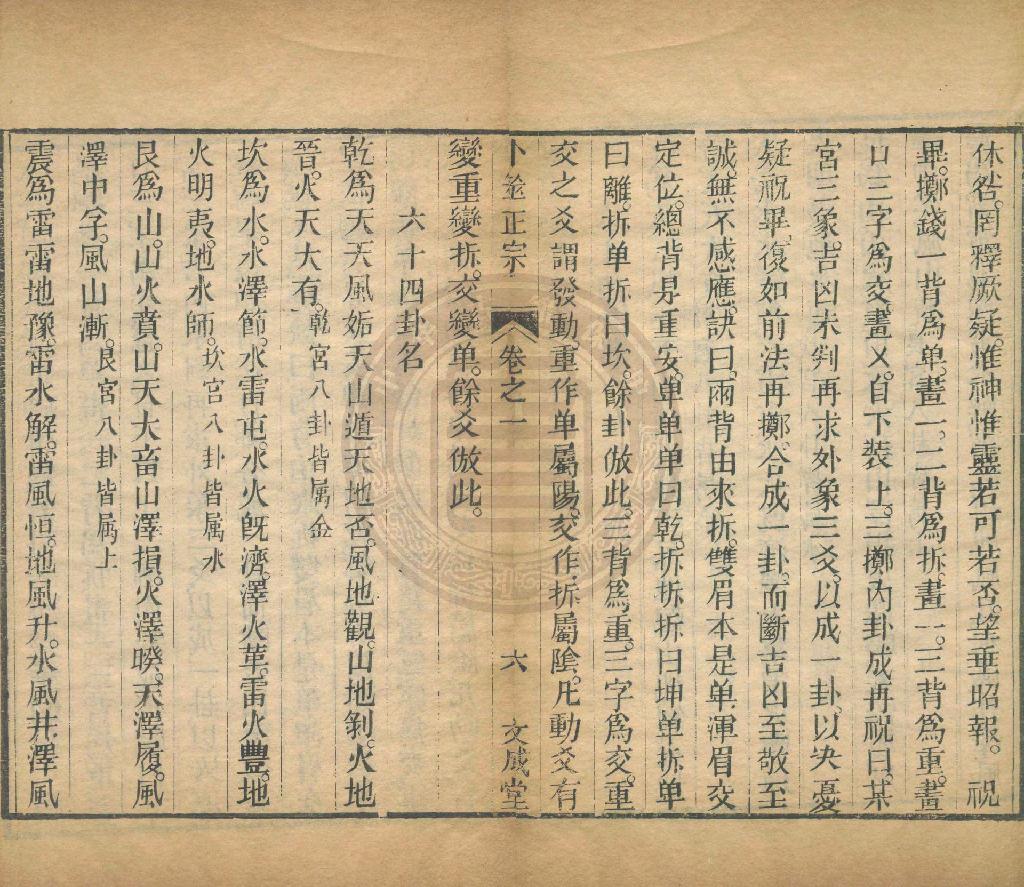 休咎。罔釋厥疑。惟神惟靈。若可若否。望垂昭報。　祝
畢。擲錢一背爲單。畫一。二背爲拆。畫一。三背爲重。畫
口三字爲交。畫乂。自下裝上。三擲內卦成再祝曰。某
宮三象吉凶未判再求外象三爻。以成一卦。以决憂
疑祝畢。復如前法再擲。合成一卦。而斷吉凶至敬至
誠。無不感應。訣曰。兩背由來拆。雙眉本是单。渾眉交
定位。總背是重安。单单单曰乾。拆拆拆曰坤单拆单
曰離。拆单拆曰坎。餘卦倣此。三背爲重。三字爲交。重
交之爻謂發動。重作单屬陽。交作拆屬陰。凡動爻有
卜筮正宗　卷之一　六　文成堂
變重變拆。交變单。餘爻倣此。
六十四卦名
乾爲天天風姤天山遁天地否。風地觀。山地剝。火地
晉。火天大有。乾宮八卦皆属金
坎爲水。水澤節。水雷屯。水火旣濟。澤火革。雷火豐。地
火明夷。地水師。坎宮八卦皆属水
艮爲山。山火賁。山天大畜山澤損。火澤睽。天澤履。風
澤中孚。風山漸。艮宮八卦皆属土
震爲雷雷地豫。雷水解。雷風恒。地風升。水風井。澤風